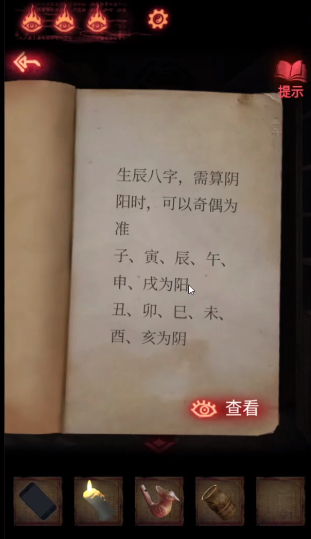 提示
生辰八字，需算阴
阳时，可以奇偶为
准
子、寅、辰、午、
申、戌为阳
丑、卯、巳、未、
酉、亥为阴
查看